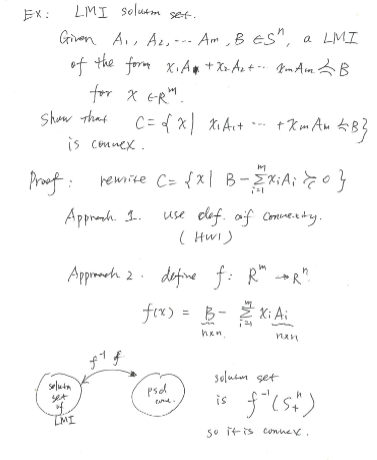 Ex: LMI solution set.
Given A₁, A₂, ... Aₘ, B ∈ Sⁿ, a LMI
of the form x₁A₁ + x₂A₂ + ... xₘAₘ ≼ B
for x ∈ ℝᵐ.
Show that C = {x | x₁A₁ + ... + xₘAₘ ≼ B}
is convex.
Proof: rewrite C = {x | B - Σᵢ₌₁ᵐ xᵢAᵢ ≽ 0}
Approach 1. use def. of convexity.
(HW1)
Approach 2. define f: ℝᵐ → ℝⁿ
f(x) = B - Σᵢ₌₁ᵐ xᵢAᵢ
n×n n×n
f⁻¹ f
solution
set
of
LMI
psd
cone.
solution set
is f⁻¹(S₊ⁿ)
so it is convex.